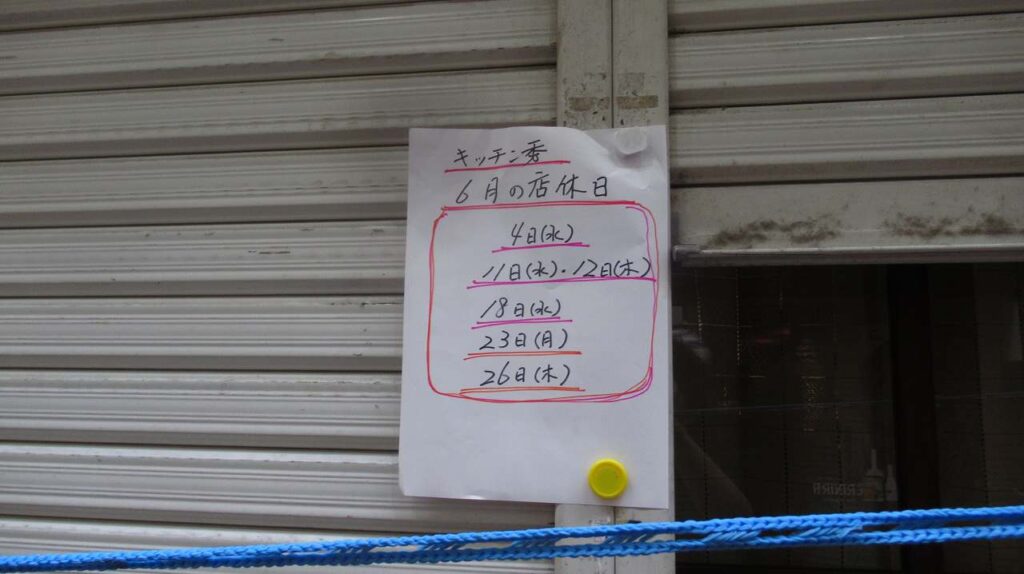 キッチン秀
6月の店休日
4日(水)
11日(水)・12日(木)
18日(水)
23日(月)
26日(木)